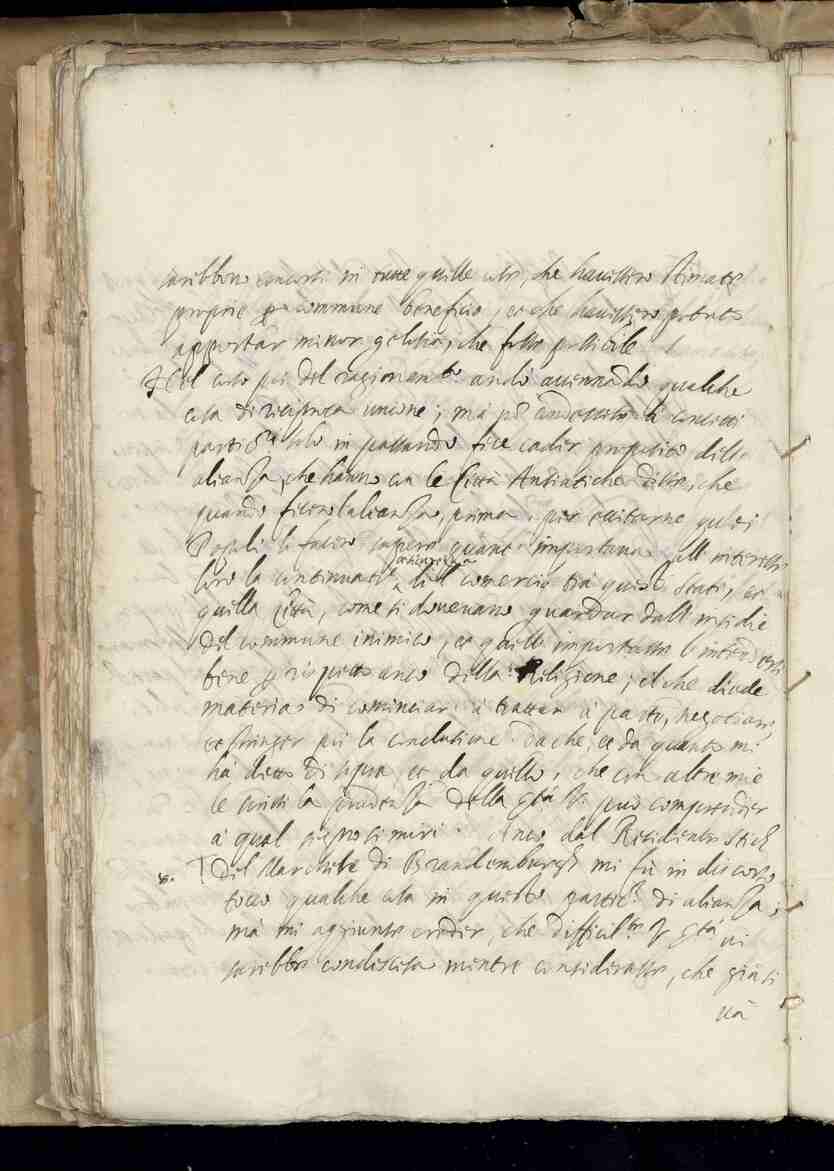 sarebbono concorsi in tutte quelle cose, che havessero stimate
proprie p commune beneficio, et che havessero potuto
apportar minor gelosia, che fosse possibile
Nel corso poi del ragionamto andò accennando qualche
cosa di reciproca unione; mà però
solo in passando fece cader proposito della
alianza, che hanno con le Città Ansiatiche disse, che
quando fecero l'alianza, prima, per eccitarne quei
Popoli li fecero sapere quanto importava all'interesse
loro la continuatne del comercio trà questi Stati, et
quella Città, come si dovevano guardar dall'insidie
del commune inimico, et quello importasse l'intendersi
bene p rispetto anco della Religione; il che diede
materia di cominciar à trattar à parte, negotiar,
et stringer poi la conclusione. Da che, et da quanto mi
hà detto di sopra, et da quello, che con altre mie
le scrissi la prudenza della Stà Va può comprender
à qual si miri. Anco dal Residente
Del Marchese di Brandemburgh mi fù in discorso
tocco qualche cosa in questo particre di alianza,
mà mi aggiunse creder, che difficilte V Stà vi
sarebbe condiscesa mentre considerasse, che già si
và